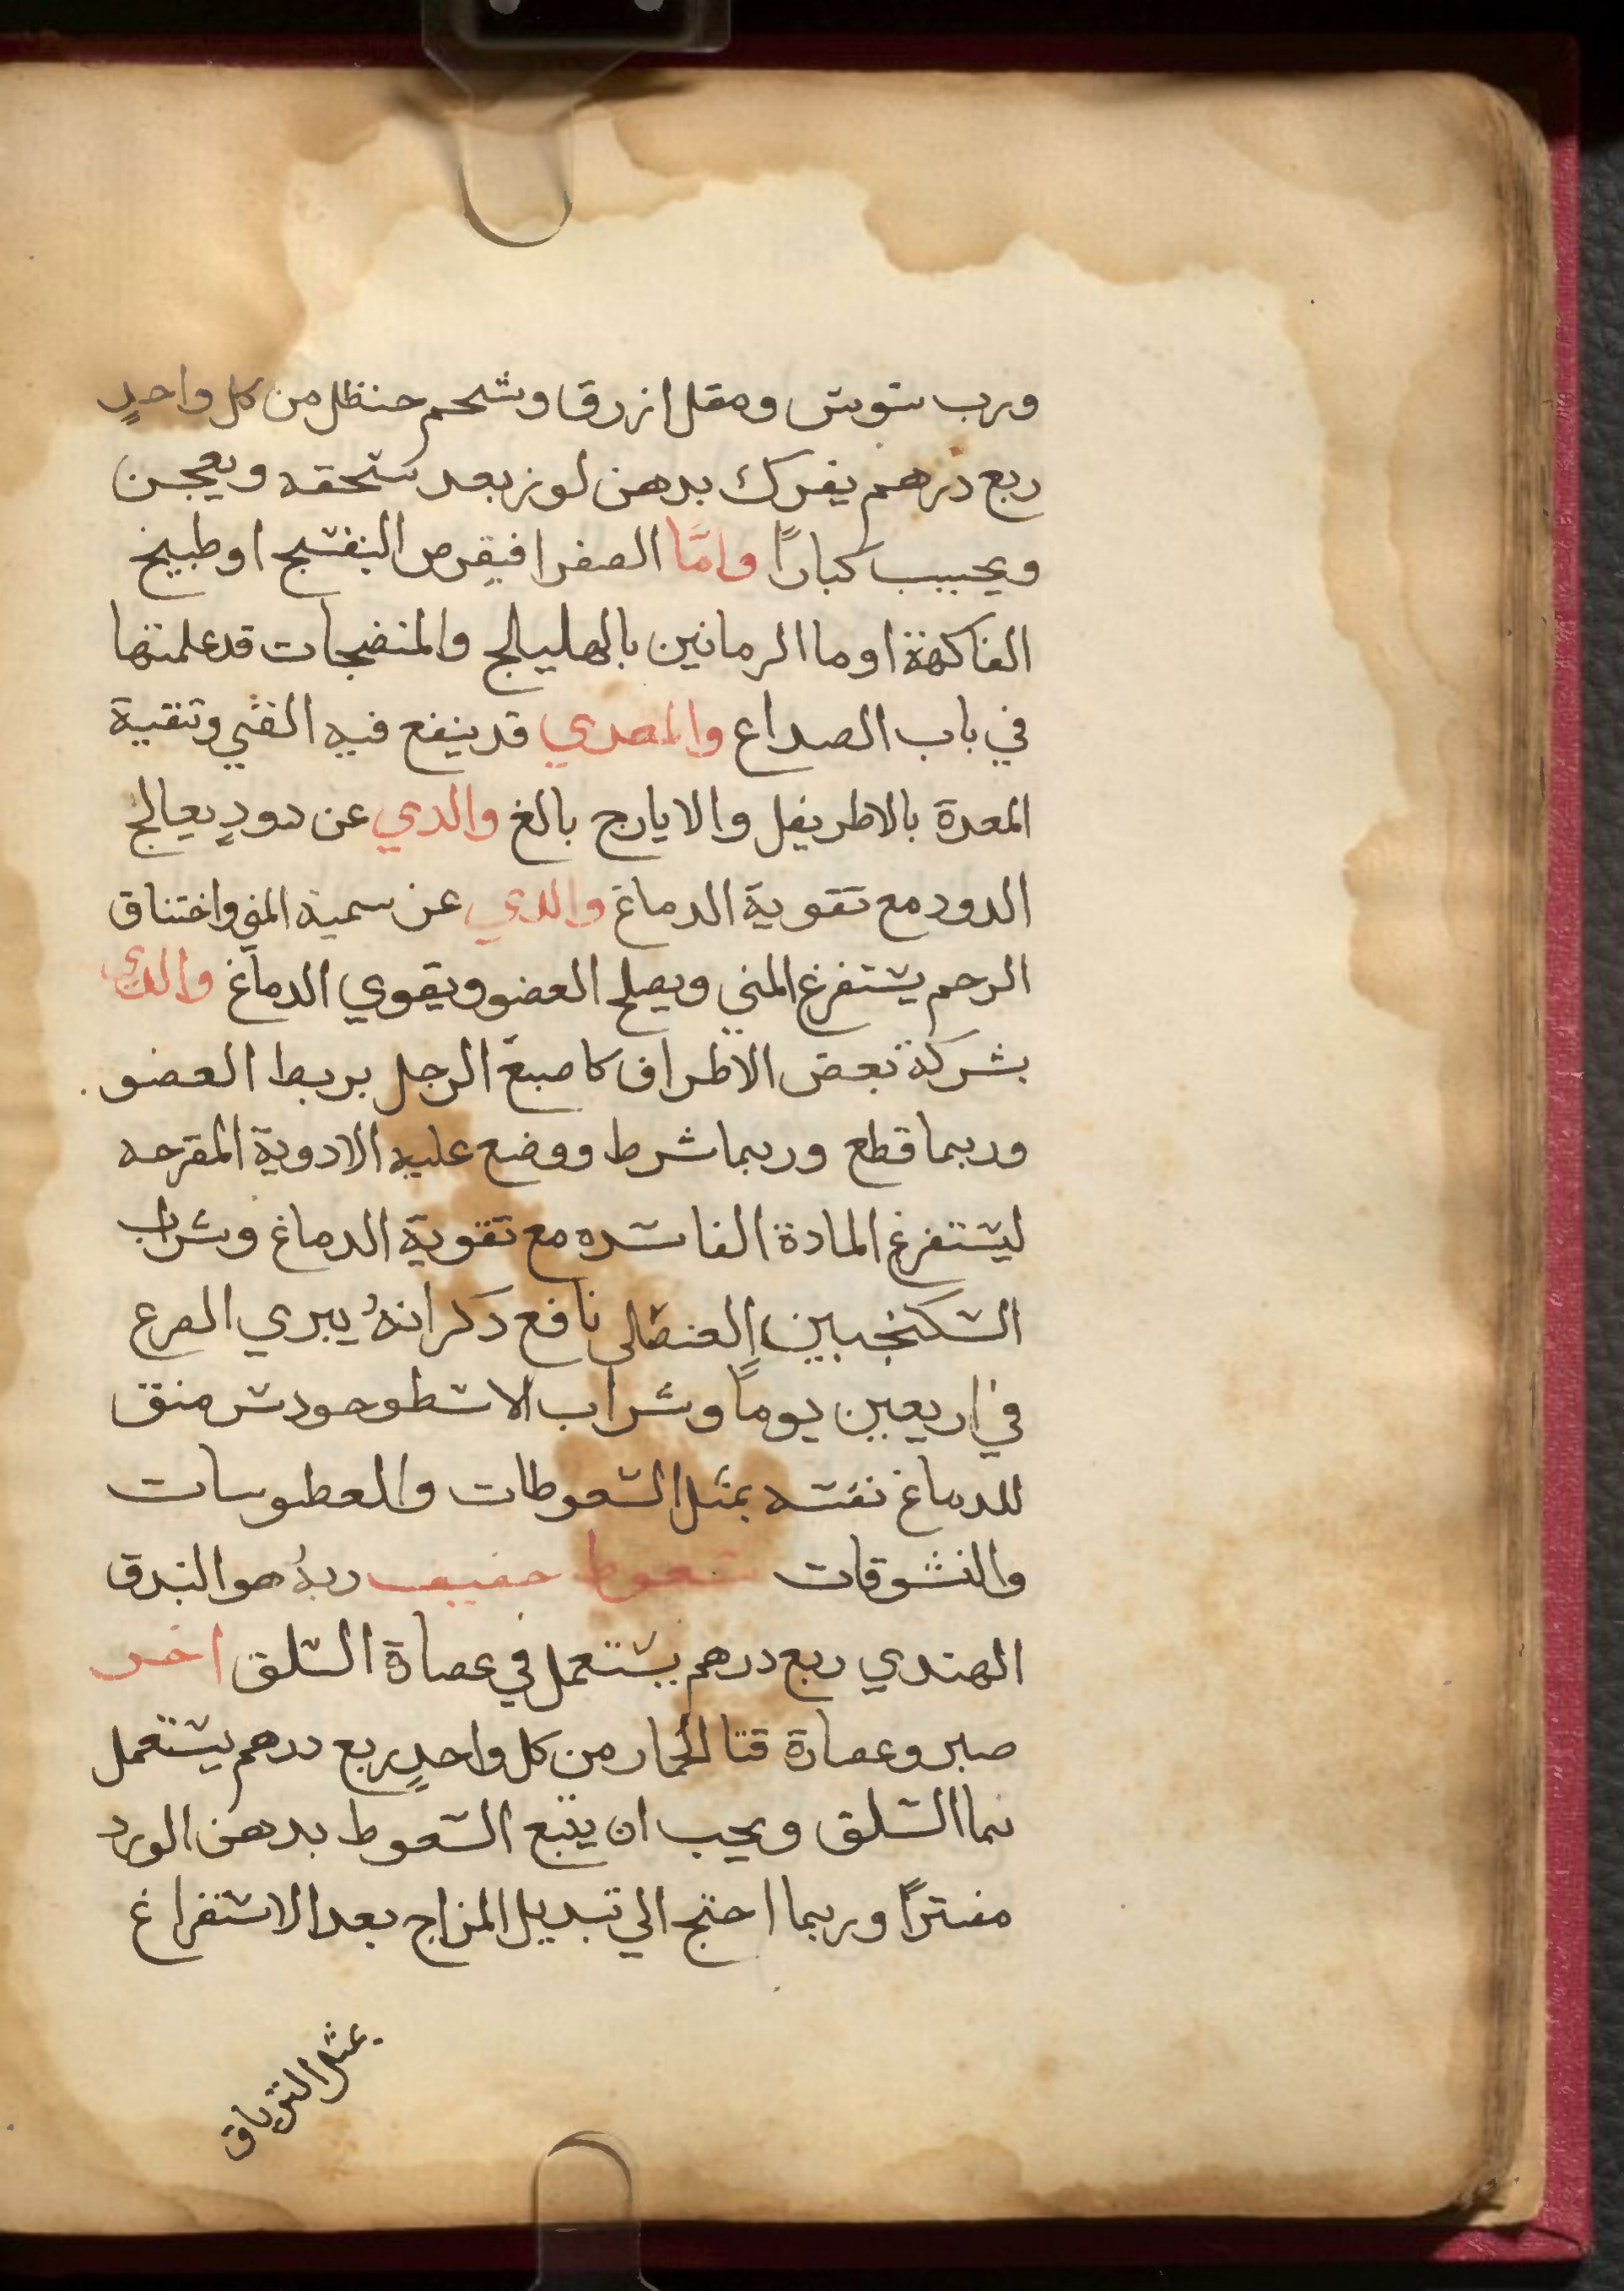 ورب سوس ومقل ازرق وشحم حنظل من كل واحدٍ
ربع درهم يفرك بدهن لوز بعد سحقه ويعجن
ويحبب كبارًا وامَّا الصفرا فبقرص البنفسج اوطبيخ
الفاكهة او ما الرمانين بالهليلج والمنضجات قد علمتها
في باب الصداع والمعدي قد ينفع فيه القي وتنقية
المعدة بالاطريفل والايارج بالغ والدي عن دودٍ يعالج
الدود مع تقوية الدماغ والدي عن سمية المني واختناق
الرحم يستفرغ المني ويصلح العضو ويقوي الدماغ والدي
بشركة بعض الاطراف كاصبع الرجل بربط العضو
وربما قطع وربما شرط ووضع عليه الادوية المقرحه
ليستفرغ المادة الفاسده مع تقوية الدماغ وشراب
السكنجبين العنصلي نافع ذكر انهُ يبري الصرع
في اربعين يومًا وشراب الاسطوخودس منق
للدماغ نفسه بمثل السعوطات والعطوسات
والنشوقات سعوط خفيف رتهُ هو البندق
الهندي ربع درهم يستعمل في عصاة السلق اخر
صبر وعصارة قثا الحمار من كل واحدٍ ربع درهم يستعمل
بما السلق ويجب ان يتبع السعوط بدهن الورد
مفترًا وربما احتج الي تبديل المزاج بعد الاستفراغ
بمثل الترياق